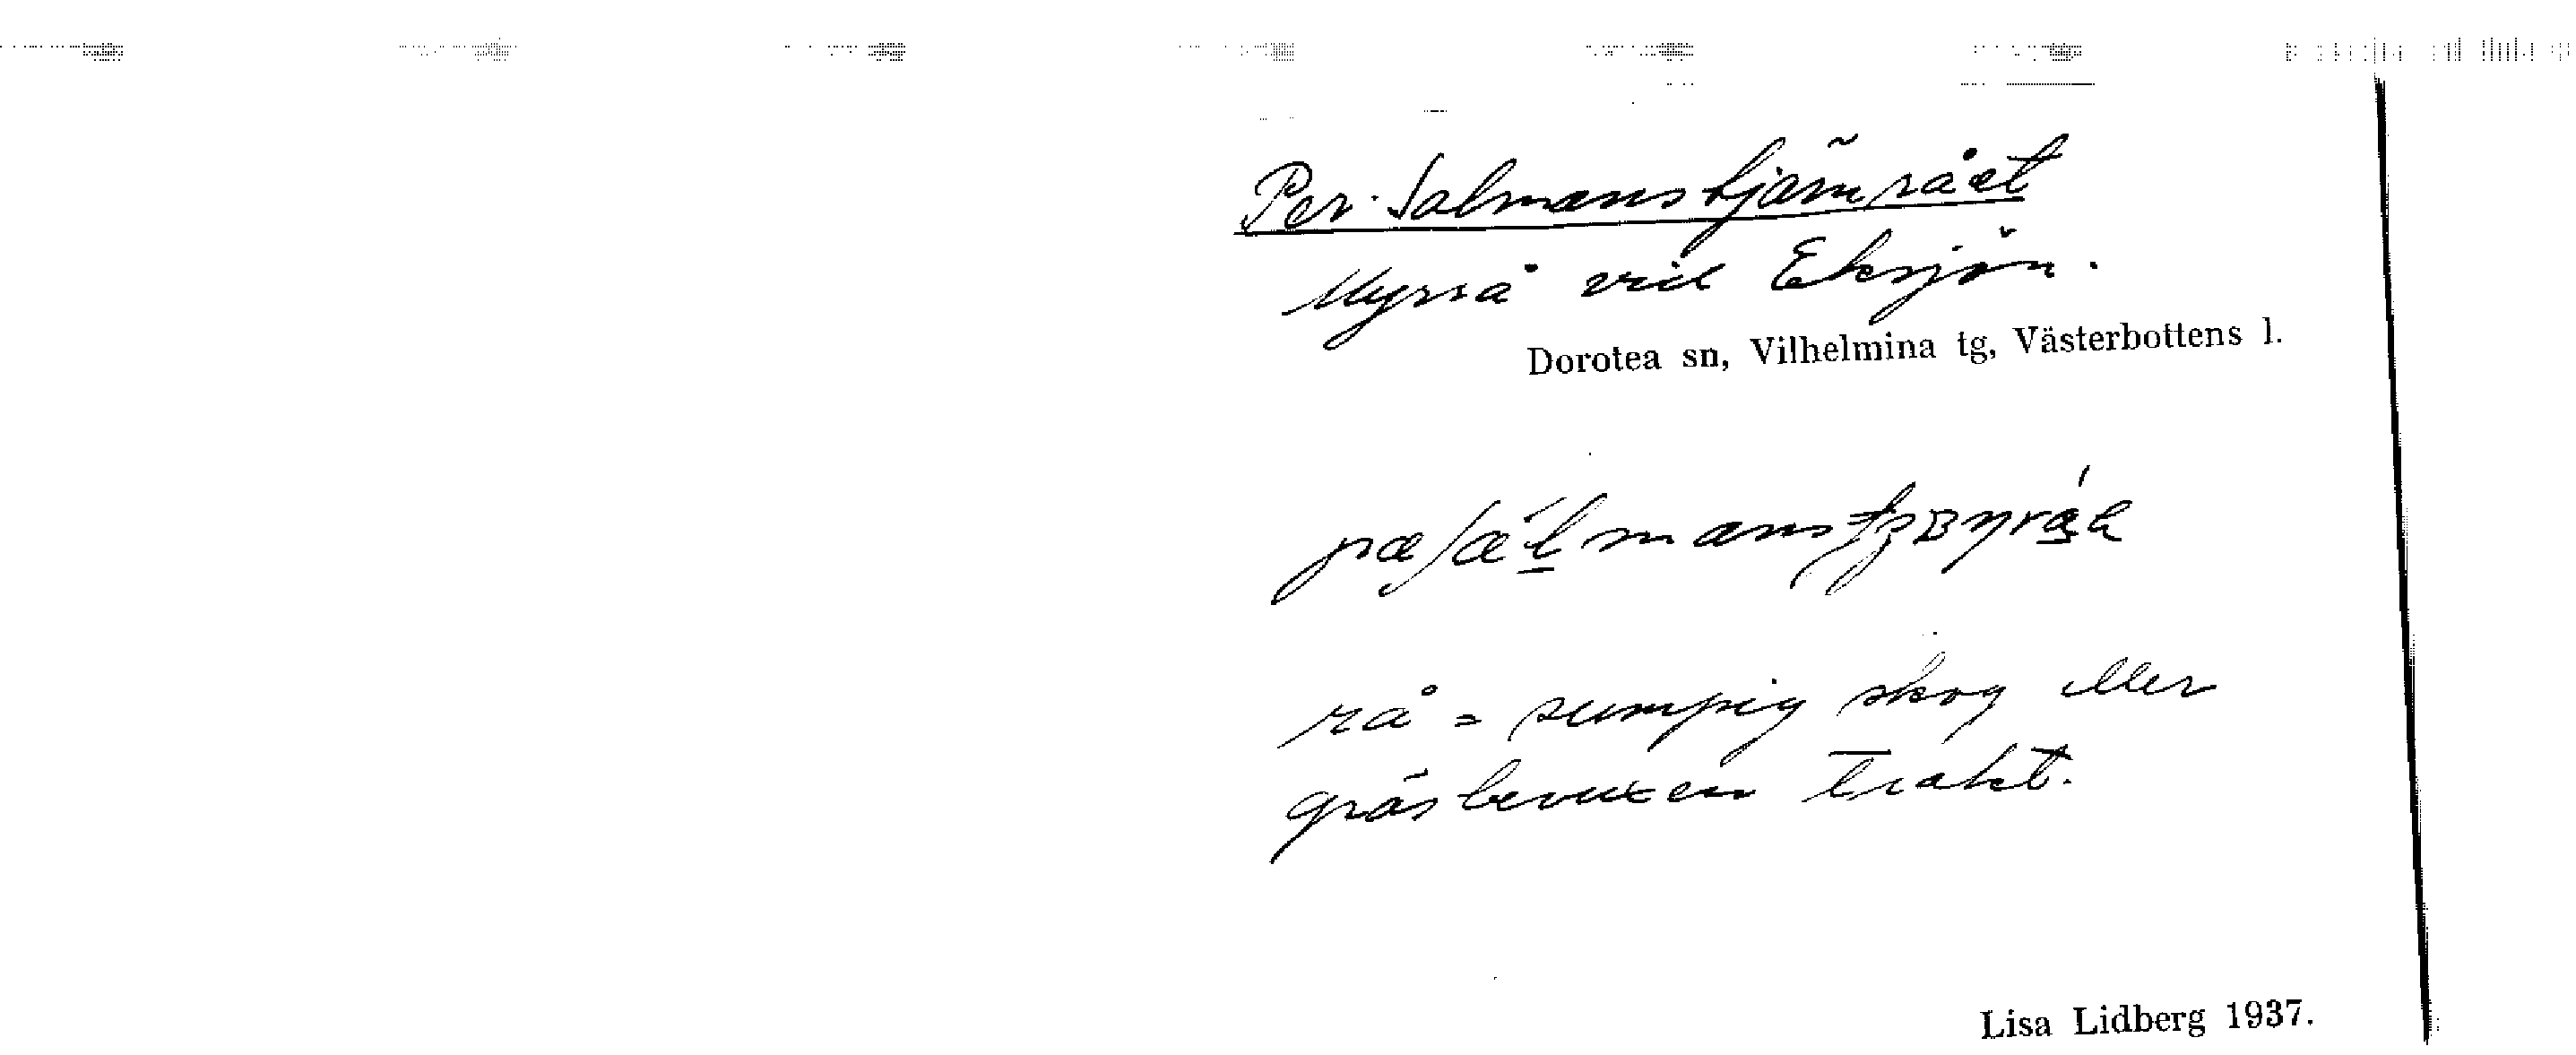 Per-Salmanstjärnrået
Myrrå vid Eksjön.
Dorotea sn, Vilhelmina tg, Västerbottens l.
rå = sumpig skog eller
gräsbevuxen trakt.
Lisa Lidberg 1937.